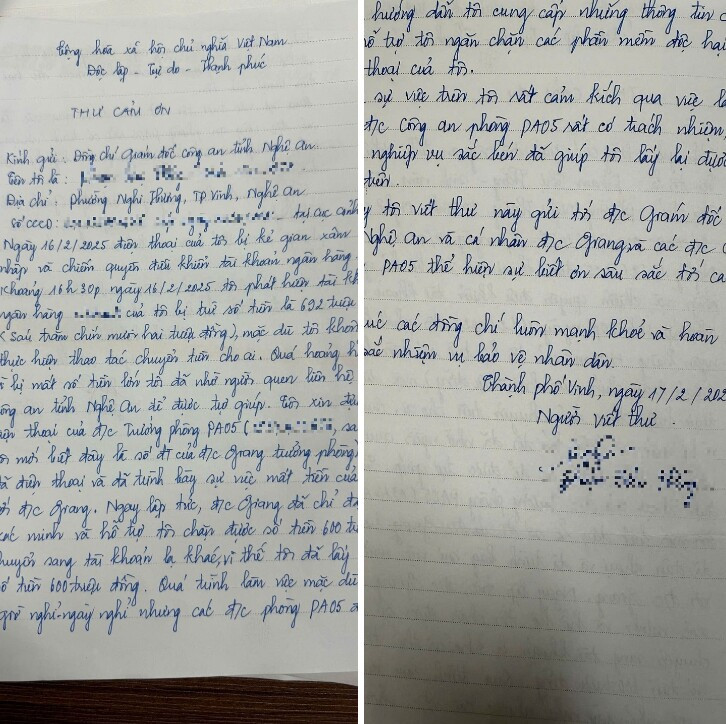 Cộng hòa xã hội chủ nghĩa Việt Nam
Độc lập - Tự do - Hạnh phúc
THƯ CẢM ƠN
Kính gửi: Đồng chí Giám đốc công an tỉnh Nghệ An
Tên tôi là:
Địa chỉ: phường Nghi Thủy, TP Vinh, Nghệ An
Số CCCD: tại cục cảnh
Ngày 16/2/2025 điện thoại của tôi bị kẻ gian xâm
nhập và chiếm quyền điều khiển tài khoản ngân hàng.
Khoảng 16h30p ngày 16/2/2025 tôi phát hiện tài kh
ngân hàng của tôi bị trừ số tiền là 692 triệu
(Sáu trăm chín mươi hai triệu đồng), mặc dù tôi khôn
thực hiện thao tác chuyển tiền cho ai. Quá hoảng h
bị mất số tiền lớn tôi đã nhờ người quen liên hệ
ông an tỉnh Nghệ An để được trợ giúp. Tôi xin đư
iện thoại của đ/c Trưởng phòng PA05 ( sa
mới biết đây là số đt của đ/c Giang trưởng phòng)
đã điện thoại và đã trình bày sự việc mất tiền của
đ/c Giang. Ngay lập tức, đ/c Giang đã chỉ đạ
xác minh và hỗ trợ tôi chặn được số tiền 600 tr
huyển sang tài khoản lạ khác, vì thế tôi đã lấy
ố tiền 600 triệu đồng. Quá trình làm việc mặc dù
giờ nghỉ - ngày nghỉ nhưng các đ/c phòng PA05
hướng dẫn tôi cung cấp những thông tin
hỗ trợ tôi ngăn chặn các phần mềm độc hại
thoại của tôi.
sự việc trên tôi rất cảm kích qua việc
đ/c công an phòng PA05 rất có trách nhiệm,
nghiệp vụ sắc bén đã giúp tôi lấy lại được
tiền.
y tôi viết thư này gửi tới đ/c Giám đốc
Nghệ An và cá nhân đ/c Giang và các đ/c
PA05 thể hiện sự biết ơn sâu sắc tới
úc các đồng chí luôn mạnh khoẻ và hoàn
sắc nhiệm vụ bảo vệ nhân dân.
Thành phố Vinh, ngày 17/2/202
Người viết thư.